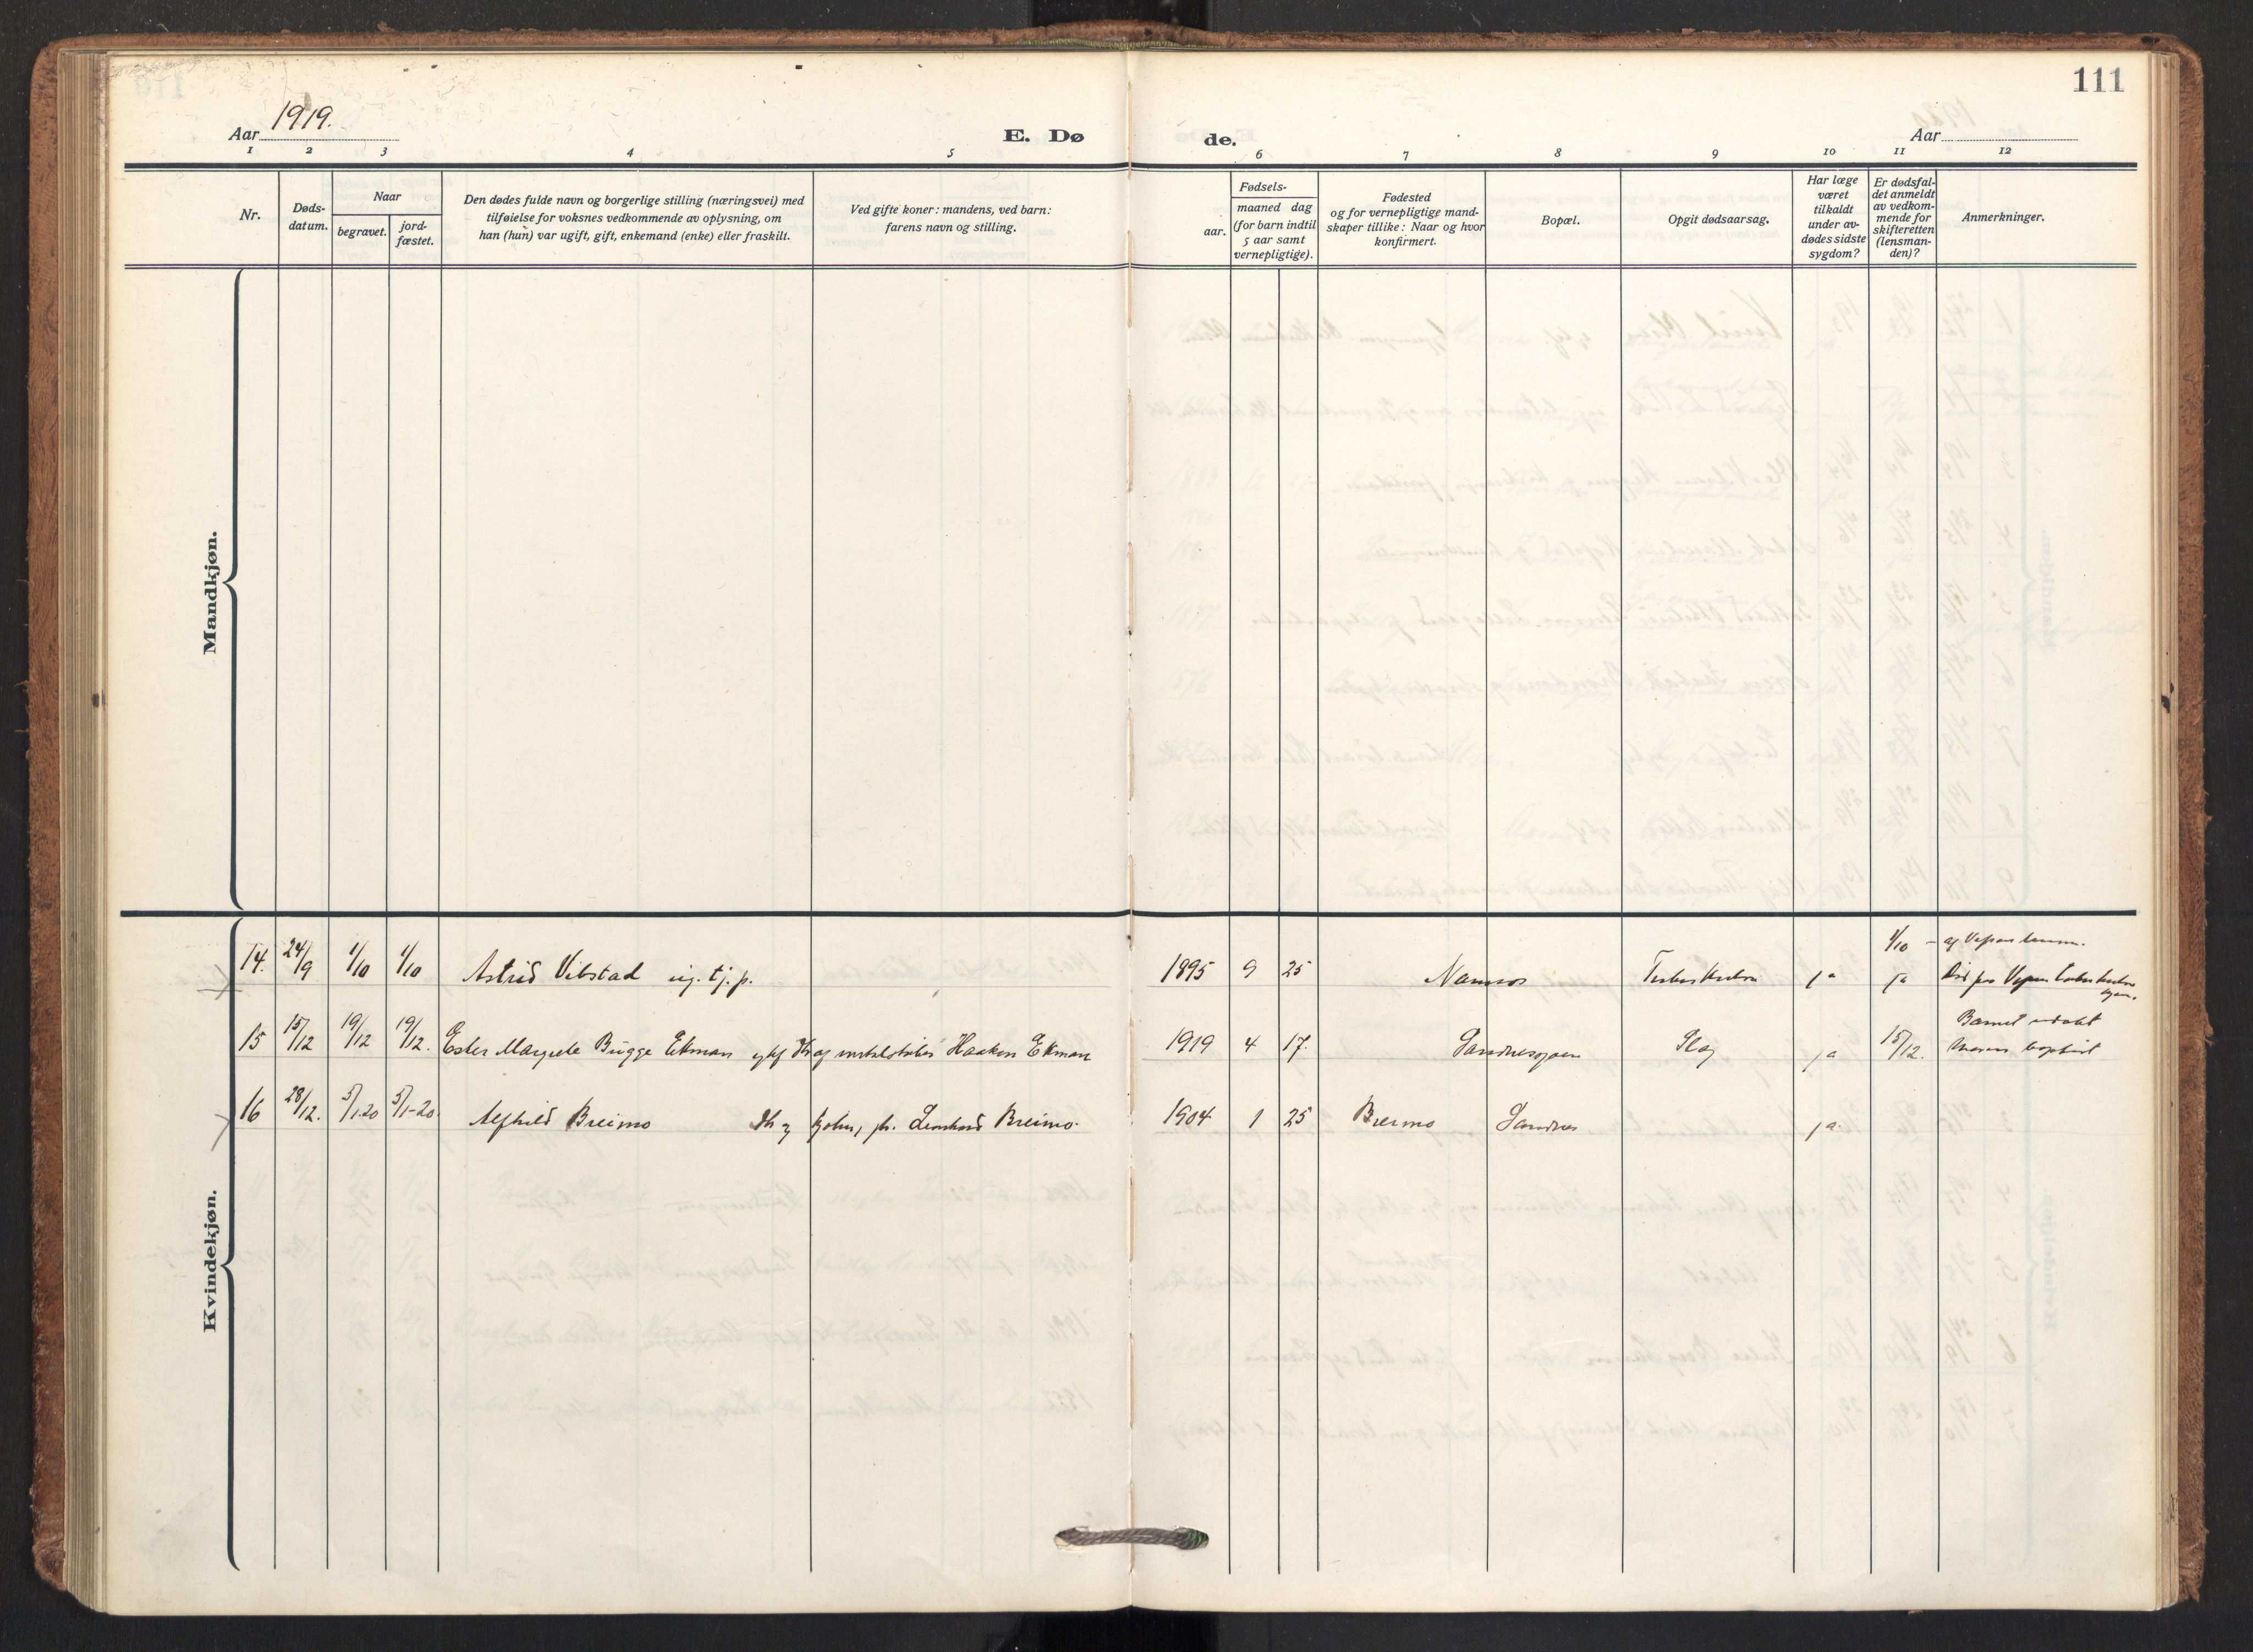 111
Aar 1919.
E. Dø
de.
Aar
1 2 3 4 5 6 7 8 9 10 11 12
Nr.
Døds-
datum.
Naar
begravet.
jord-
fæstet.
Den dødes fulde navn og borgerlige stilling (næringsvei) med
tilføielse for voksnes vedkommende av oplysning, om
han (hun) var ugift, gift, enkemand (enke) eller fraskilt.
Ved gifte koner: mandens, ved barn:
farens navn og stilling.
Fødsels-
aar.
maaned dag
(for barn indtil
5 aar samt
vernepligtige).
Fødested
og for vernepligtige mand-
skaper tillike: Naar og hvor
konfirmert.
Bopæl.
Opgit dødsaarsag.
Har læge
været
tilkaldt
under av-
dødes sidste
sygdom?
Er dødsfal-
det anmeldt
av vedkom-
mende for
skifteretten
(lensman-
den)?
Anmerkninger.
Mandkjøn.
Kvindekjøn.
14. 24/9 1/10 1/10 Astrid Vibstad ug. tj. p. 1895 9 25 Namsos ja 1/10 ja
15 15/12 19/12 19/12. Ester Margrete Bugge Ekman Haakon Ekman 1919 4 17. ja 15/12. Barnet
16 28/12. 5/1 20 5/1-20. Alfhild Breimo Breimo. 1904 1 25 Breimo Sandnes ja.